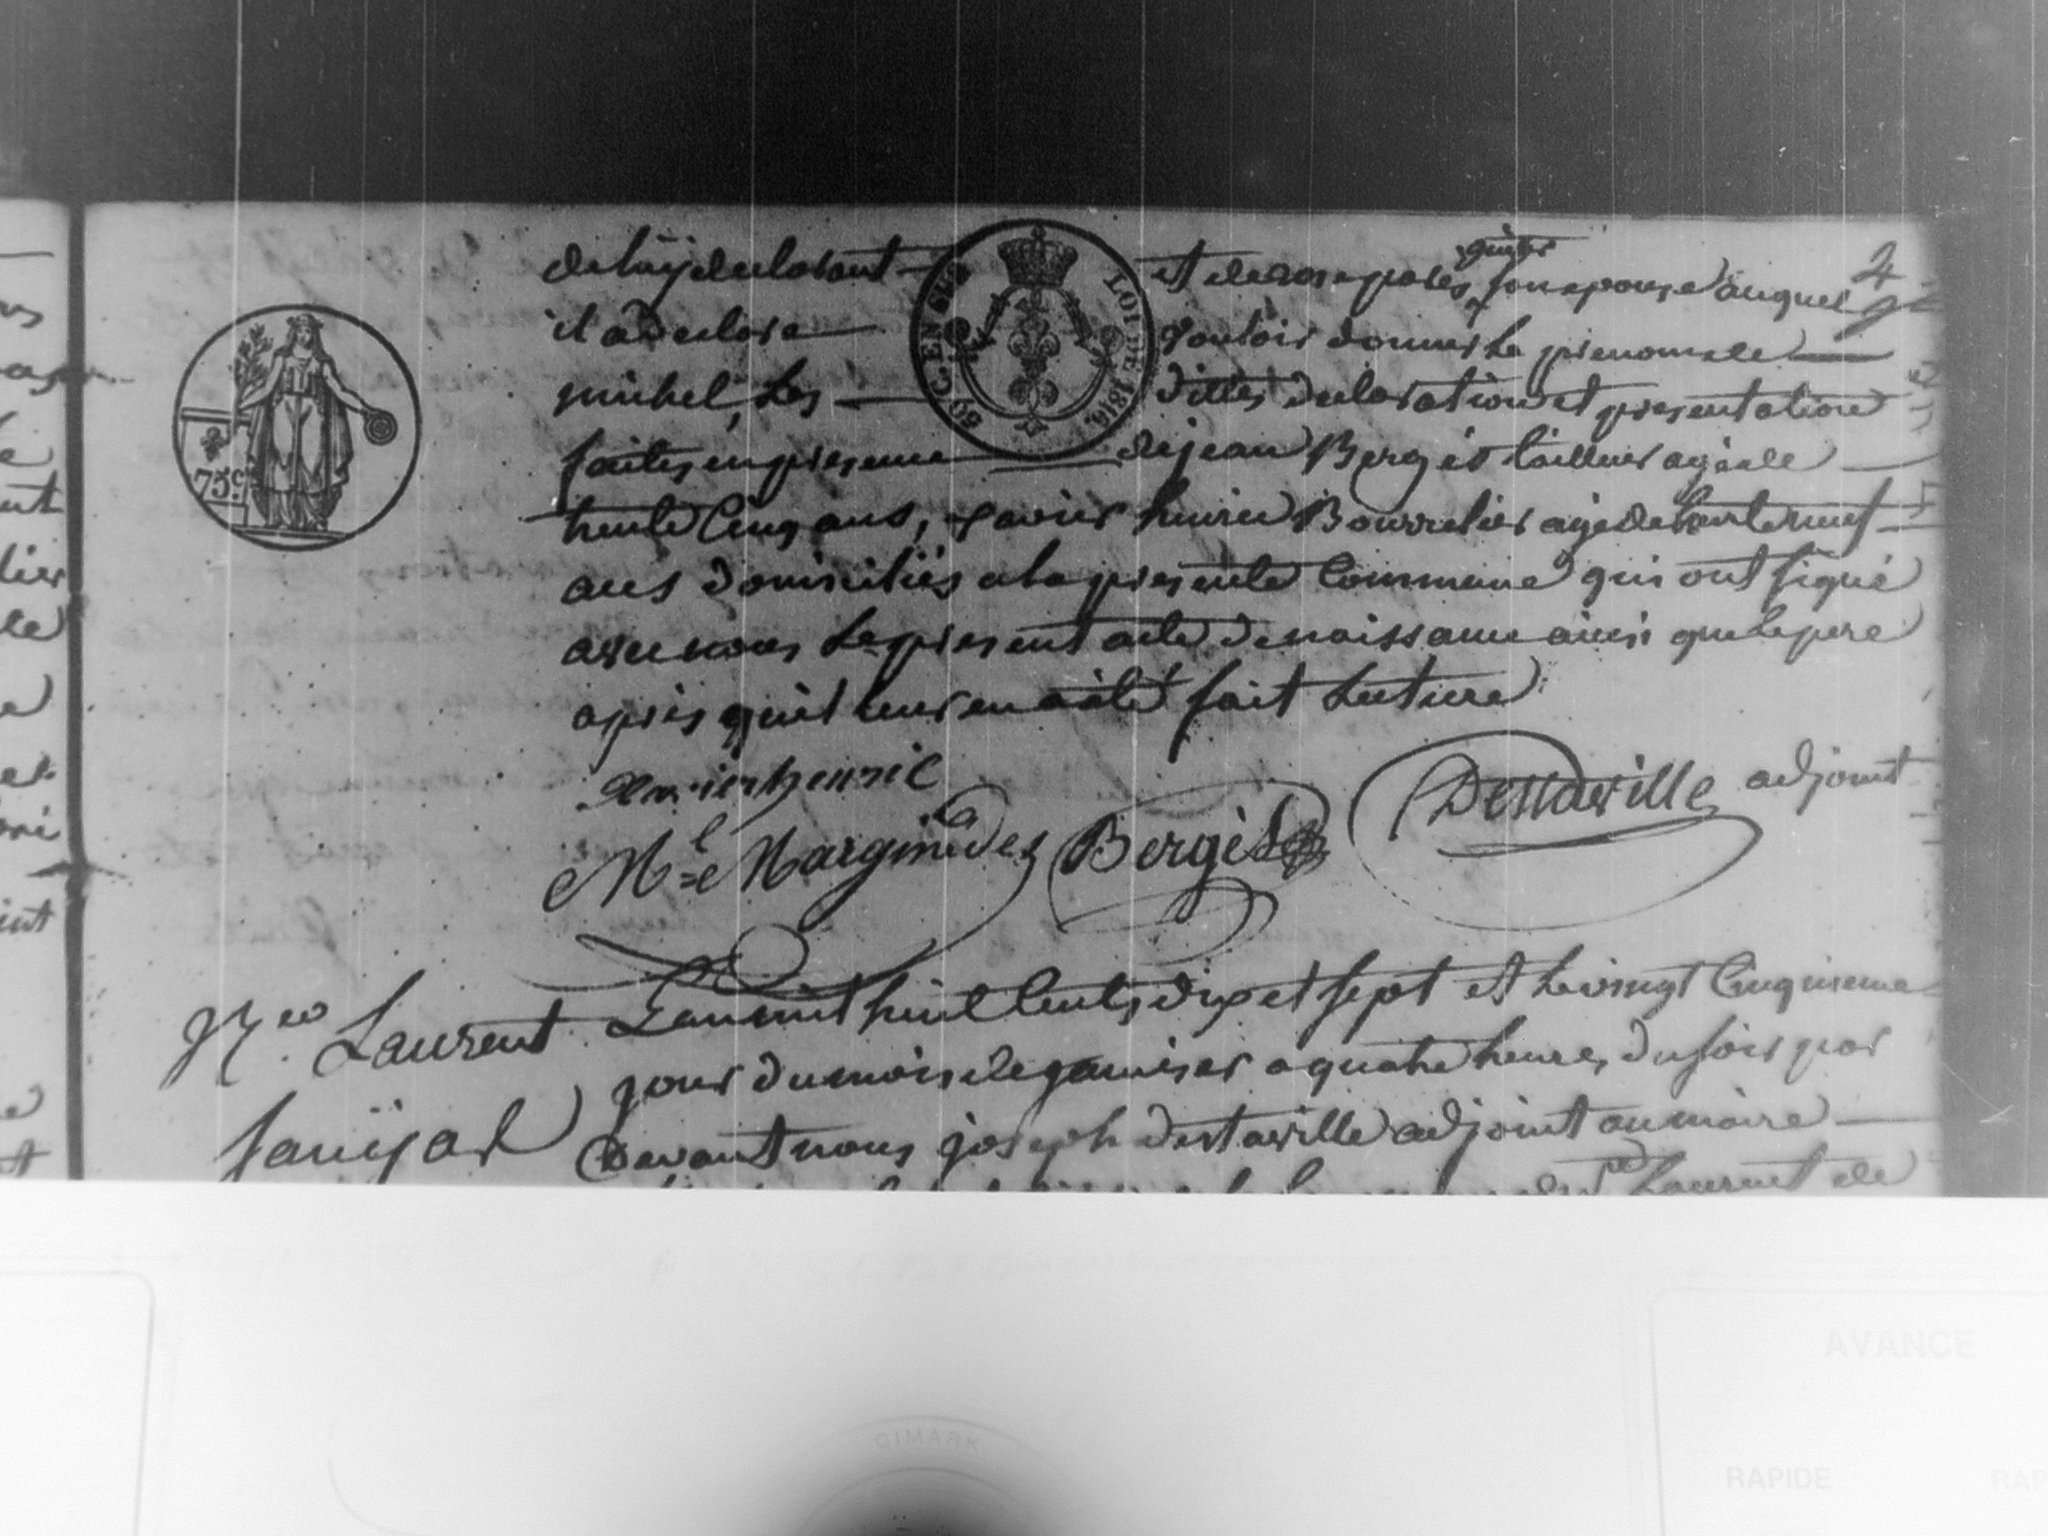 de luy declarant et de rose pares son epouse auquel
quinter
il a declare vouloir donner le prenom de
michel, Les dittes declaration et presentation
faites en presence de jean Bergés tailleur agé de
trente Cinq ans, xavier henric Bourrelier agé de trente neuf
ans domiciliés a la presente Commune qui ont signé
avec nous Le present acte de naissance ainsi que le pere
après qu'il leur en a été fait Lecture
2
75 C.
LOI DE 1816.
C. EN SUS
Xavier henric
Mel Marginèdes Bergés Destaville adjoint
Nce Laurent
Sauijat
L'an mil huit Cents dix et sept et le vingt Cinquieme
jour du mois de janvier a quatre heures du soir par
Devant nous joseph destaville adjoint au maire
Laurent de
AVANCE
CIMARK
RAPIDE
RAP